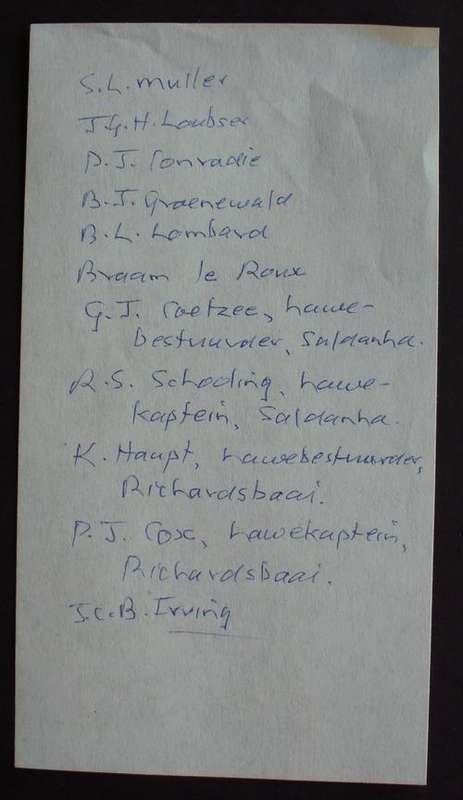 S.L. Muller
J.G.H. Loubser
P.J. Conradie
B.J. Groenewald
B.L. Lombard
Braam le Roux
G.J. Coetzee, hawe-
bestuurder, Saldanha.
R.S. Schoding, hawe-
kaptein, Saldanha.
K. Haupt, hawebestuurder,
Richardsbaai.
P.J. Cox, hawekaptein,
Richardsbaai.
J.C.B. Irving